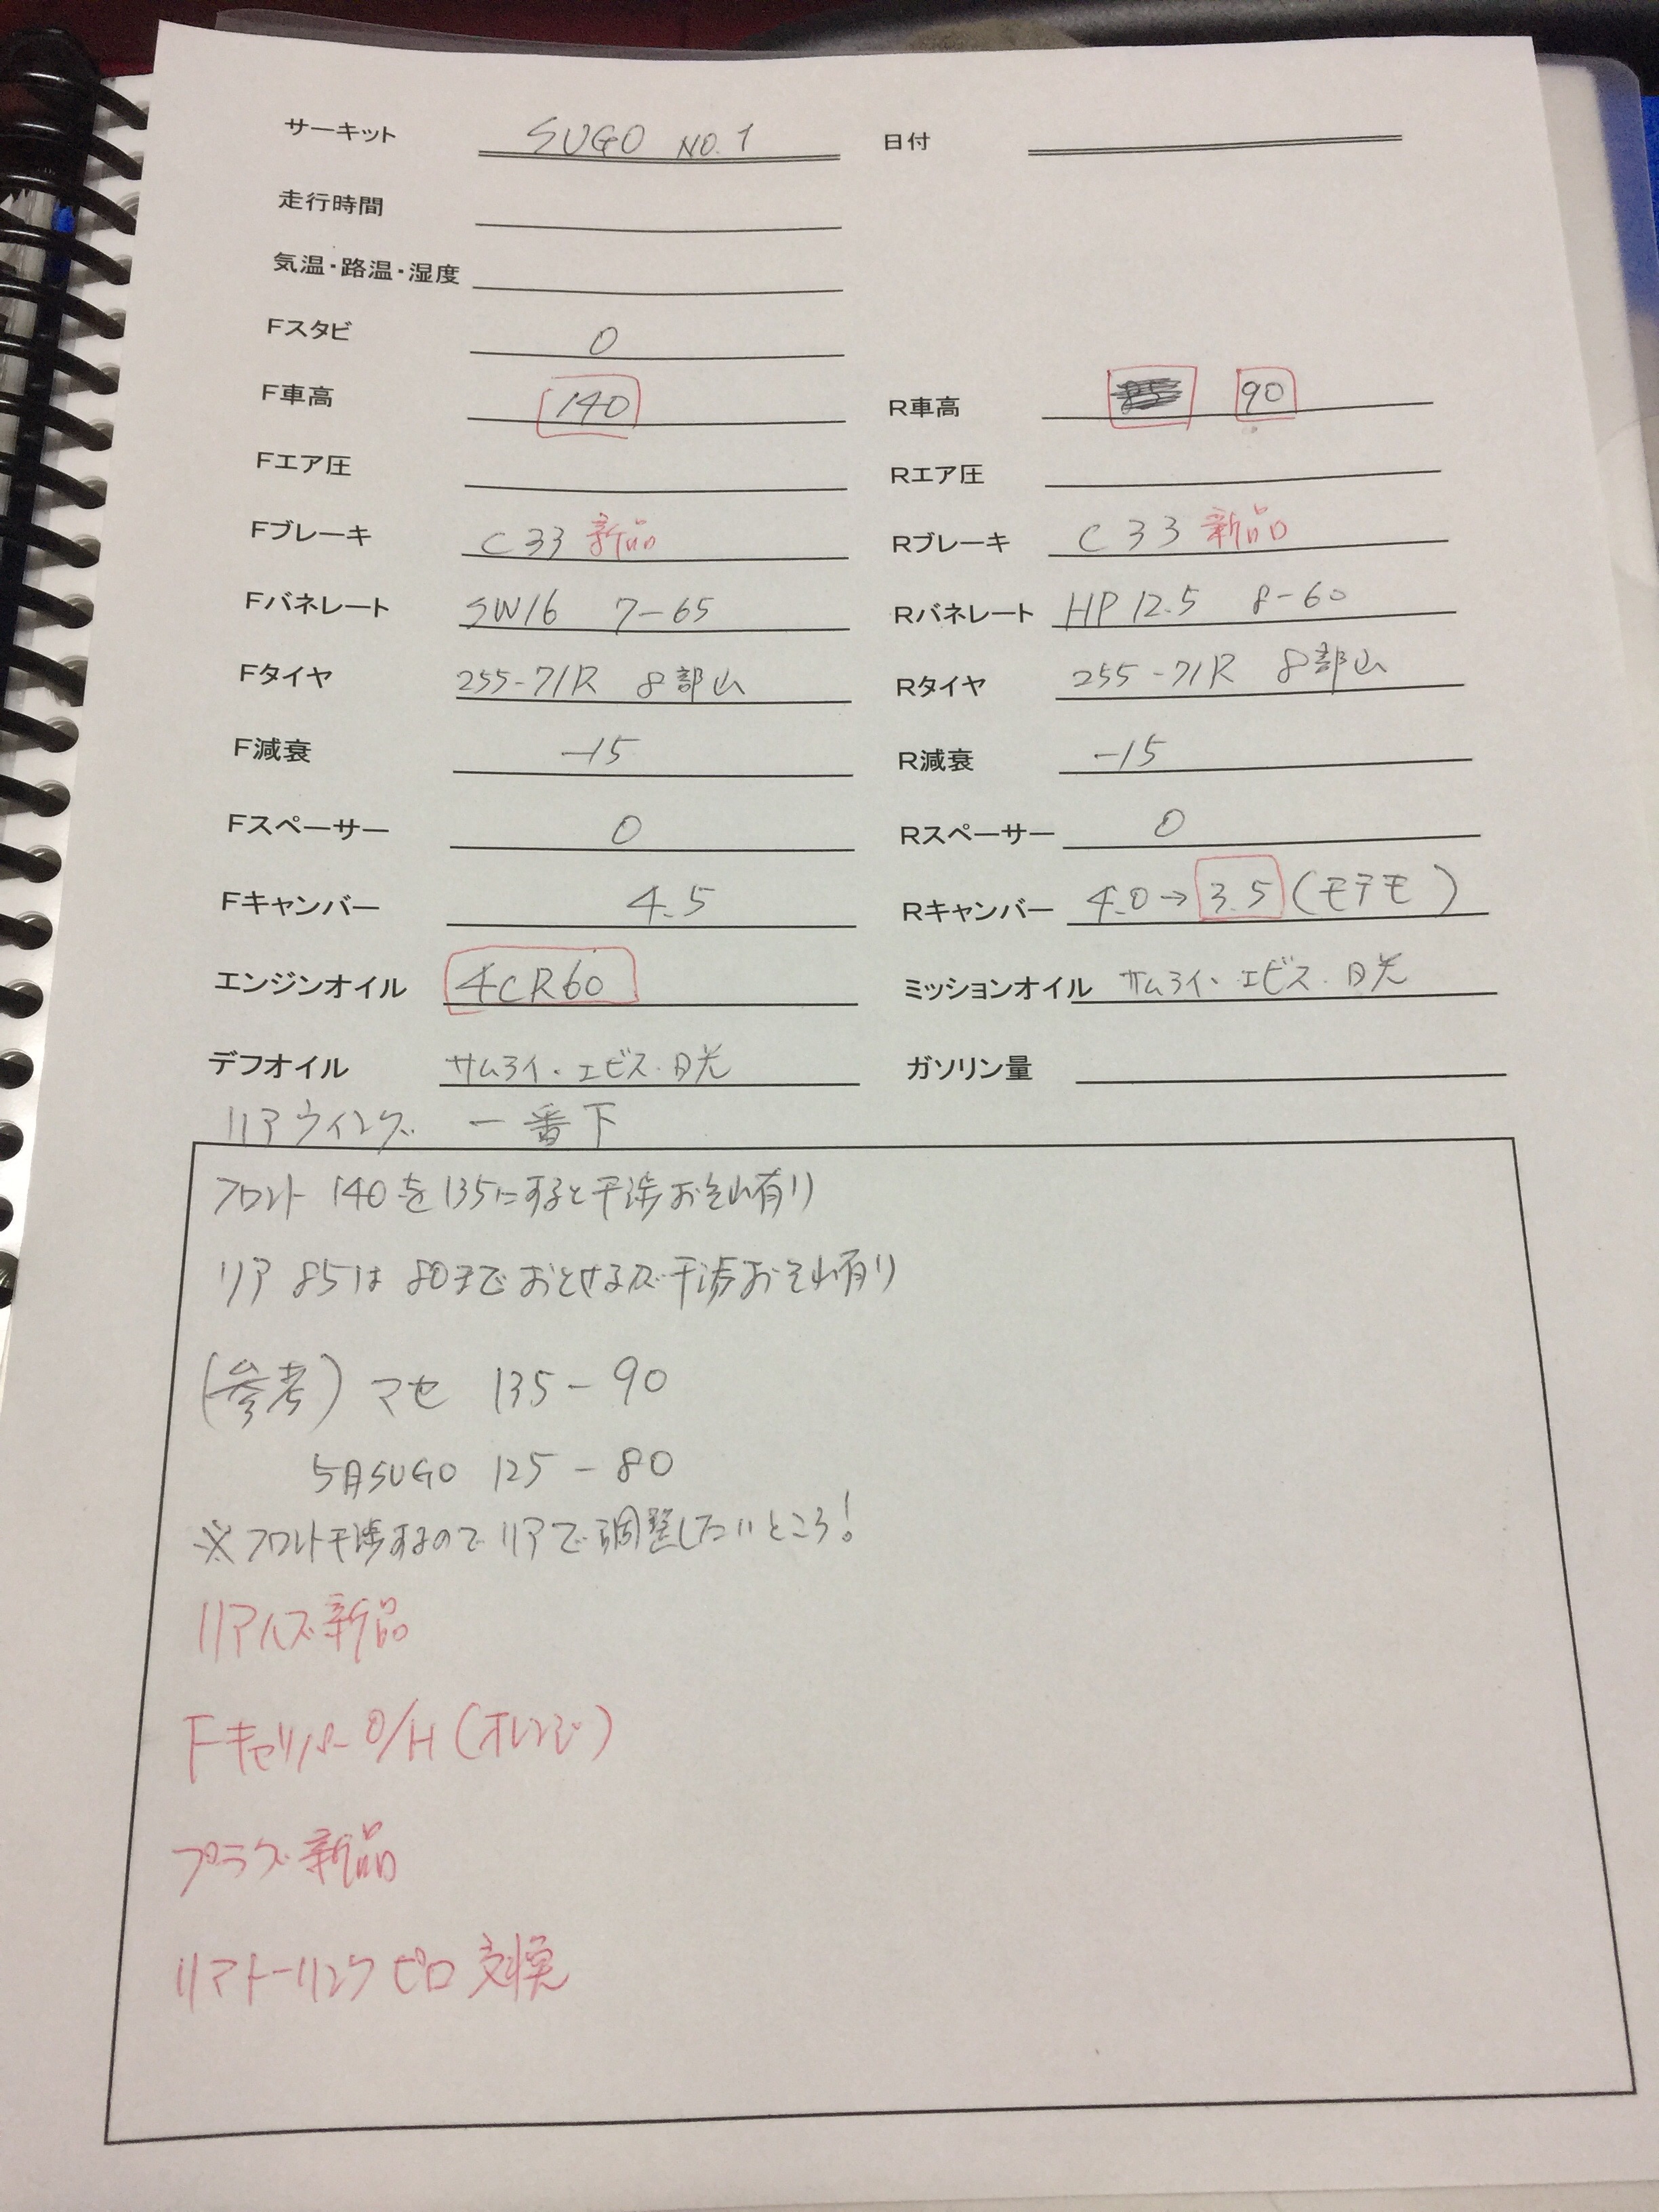 サーキット SUGO NO.1 日付
走行時間
気温・路温・湿度
Fスタビ 0
F車高 140 R車高 90
Fエア圧 Rエア圧
Fブレーキ C33 新品 Rブレーキ C33 新品
Fバネレート SW16 7-65 Rバネレート HP12.5 8-60
Fタイヤ 255-71R 8部山 Rタイヤ 255-71R 8部山
F減衰 -15 R減衰 -15
Fスペーサー 0 Rスペーサー 0
Fキャンバー 4.5 Rキャンバー 4.0→3.5(モテモ)
エンジンオイル 4CR60 ミッションオイル サムライ・エビス・日光
デフオイル サムライ・エビス・日光 ガソリン量
リアウイング 一番下
フロント 140を135にすると干渉おそれ有り
リア 85は 80までおとせるが干渉おそれ有り
(参考) マセ 135-90
5月SUGO 125-80
※フロント干渉するのでリアで調整したいところ!
リアハブ新品
FキャリパーO/H(オレンジ)
プラグ新品
リアトーリンクピロ交換